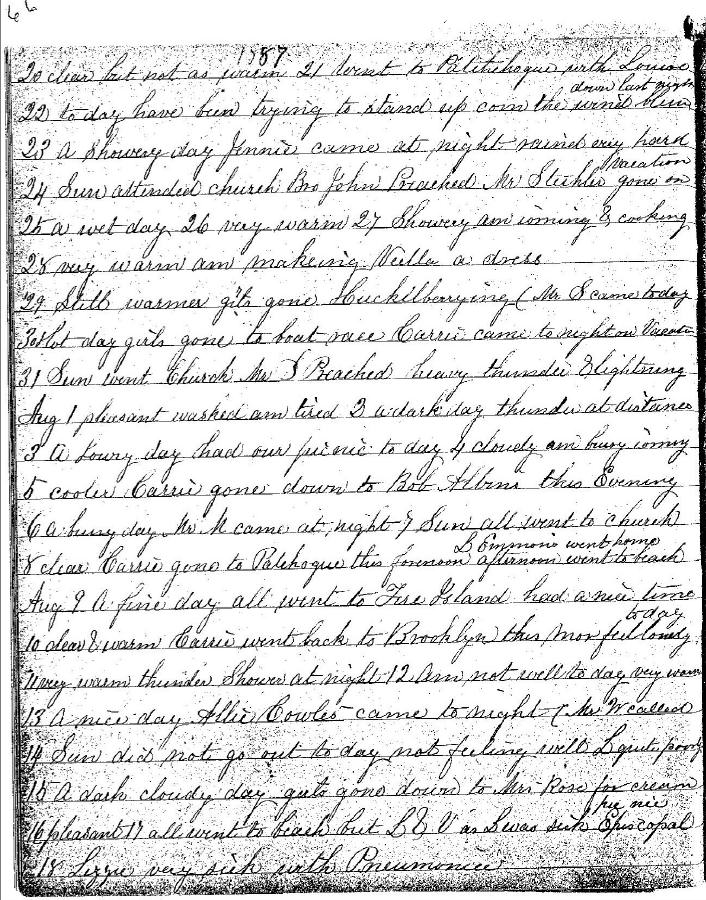 66
1887
20 clear but not as warm 21 Went to Patchchogue with Louise
down last night
22 to day have been trying to stand up corn the wind blew
23 A Showery day Jennie came at night raind very hard
vacation
24 Sun attended church Bro John Preached Mr gone on
25 a wet day 26 very warm 27 Showery am ironing & cooking
28 very warm am makeing Vella a dress
29 Still warmer girls gone Huckilberrying (Mr S came to day
30 Hot day girls gone to boat race Carrie came to night on Vacation
31 Sun went Church Mr S Preached heavy thunder & lightning
Aug 1 pleasant washed am tired 2 a dark day thunder at distance
3 A Lowry day had our picnic to day 4 cloudy am busy ironing
5 cooler Carrie gone down to Bob Albins this Evening
6 A busy day Mr M came at night 7 Sun all went to church
L Emmons went home
8 clear Carrie gone to Patchogue this forenoon afternoon went to beach
Aug 9 A fine day all went to Fire Island had a nice time
to day
10 clear & warm Carrie went back to Brooklyn this mor feel lonely
11 very warm thunder Shower at night 12 Am not well to day very warm
13 A nice day Allie Cowles came to night (Mr W called
14 Sun did not go out to day not feeling well L quite poorly
15 A dark cloudy day girls gone down to Mrs Rose for cream
pic nic
16 pleasant 17 all went to beach but L & V as L was sick Episcopal
18 Lizzie very sick with Pneumonia